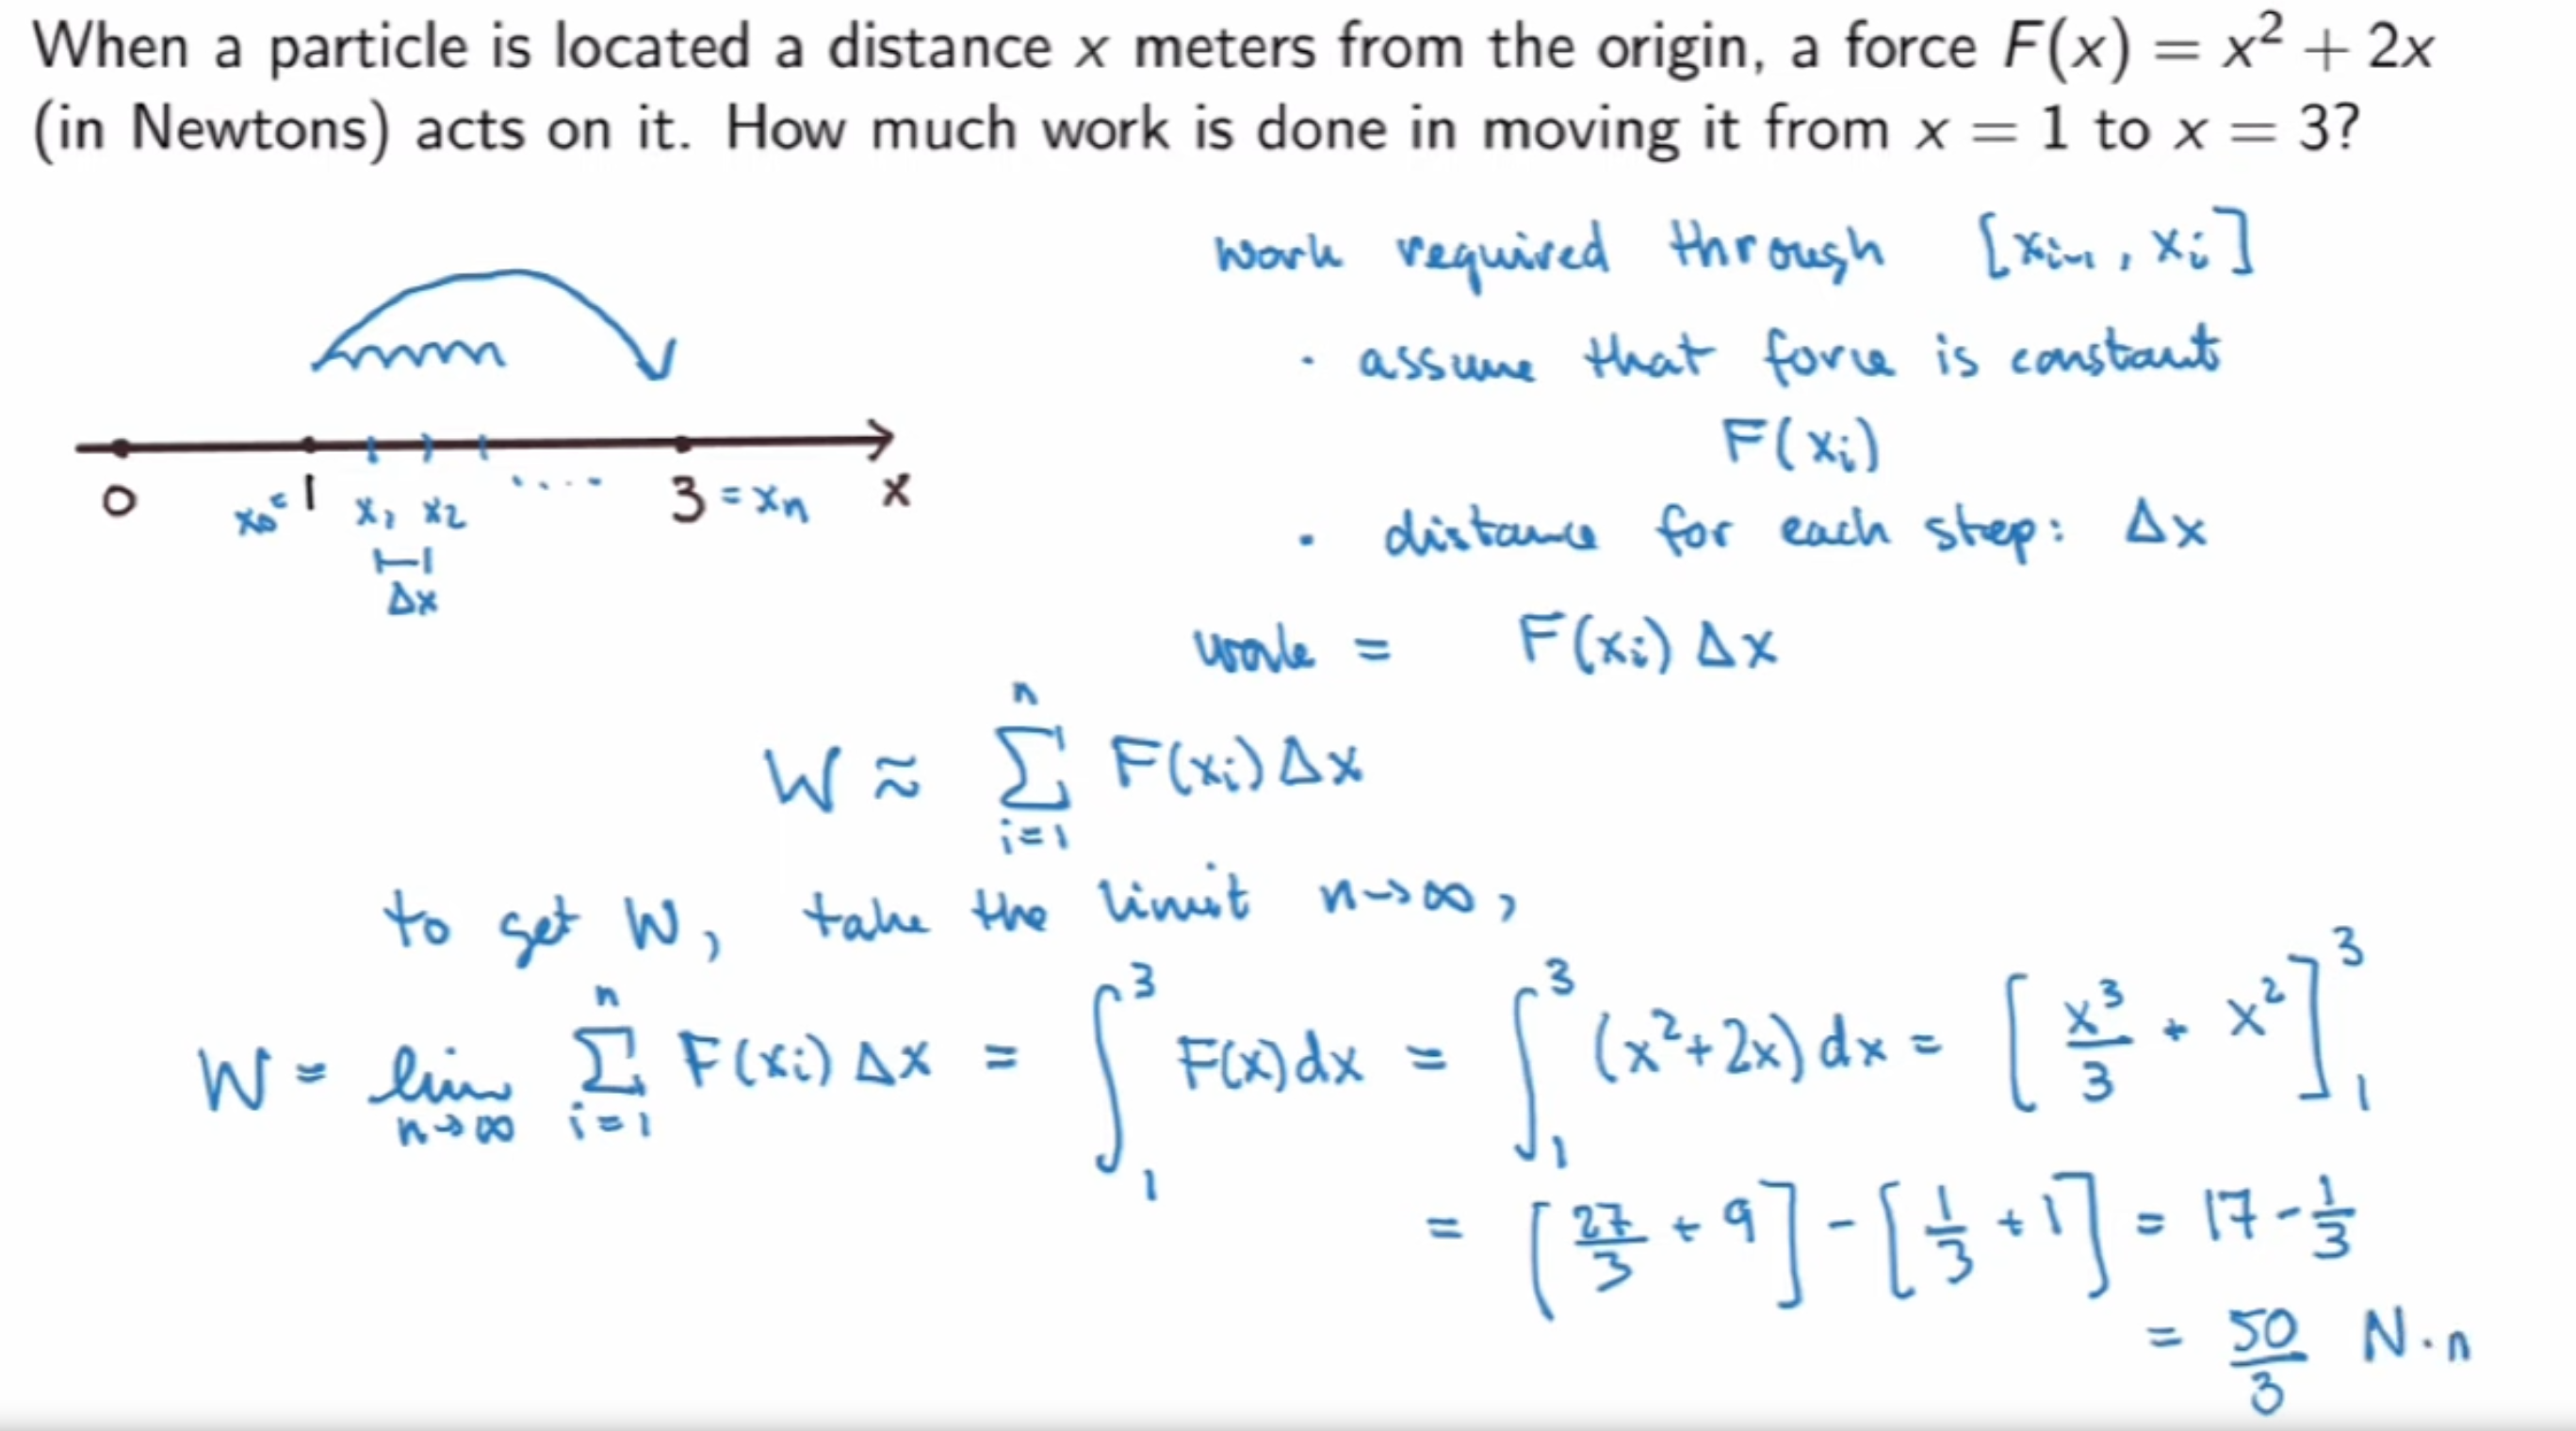 When a particle is located a distance x meters from the origin, a force F(x) = x² + 2x
(in Newtons) acts on it. How much work is done in moving it from x = 1 to x = 3?
work required through [xᵢ₋₁, xᵢ]
· assume that force is constant
F(xᵢ)
· distance for each step: Δx
0 x₀ = 1 x₁ x₂ .... 3 = xₙ x
Δx
work = F(xᵢ) Δx
W ≈ ∑ᵢ₌₁ⁿ F(xᵢ) Δx
to get W, take the limit n→∞,
W = lim n→∞ ∑ᵢ₌₁ⁿ F(xᵢ) Δx = ∫₁³ F(x) dx = ∫₁³ (x²+2x) dx = [x³/3 + x²]₁³
= [27/3 + 9] - [1/3 + 1] = 17 - 1/3
= 50/3 N·n